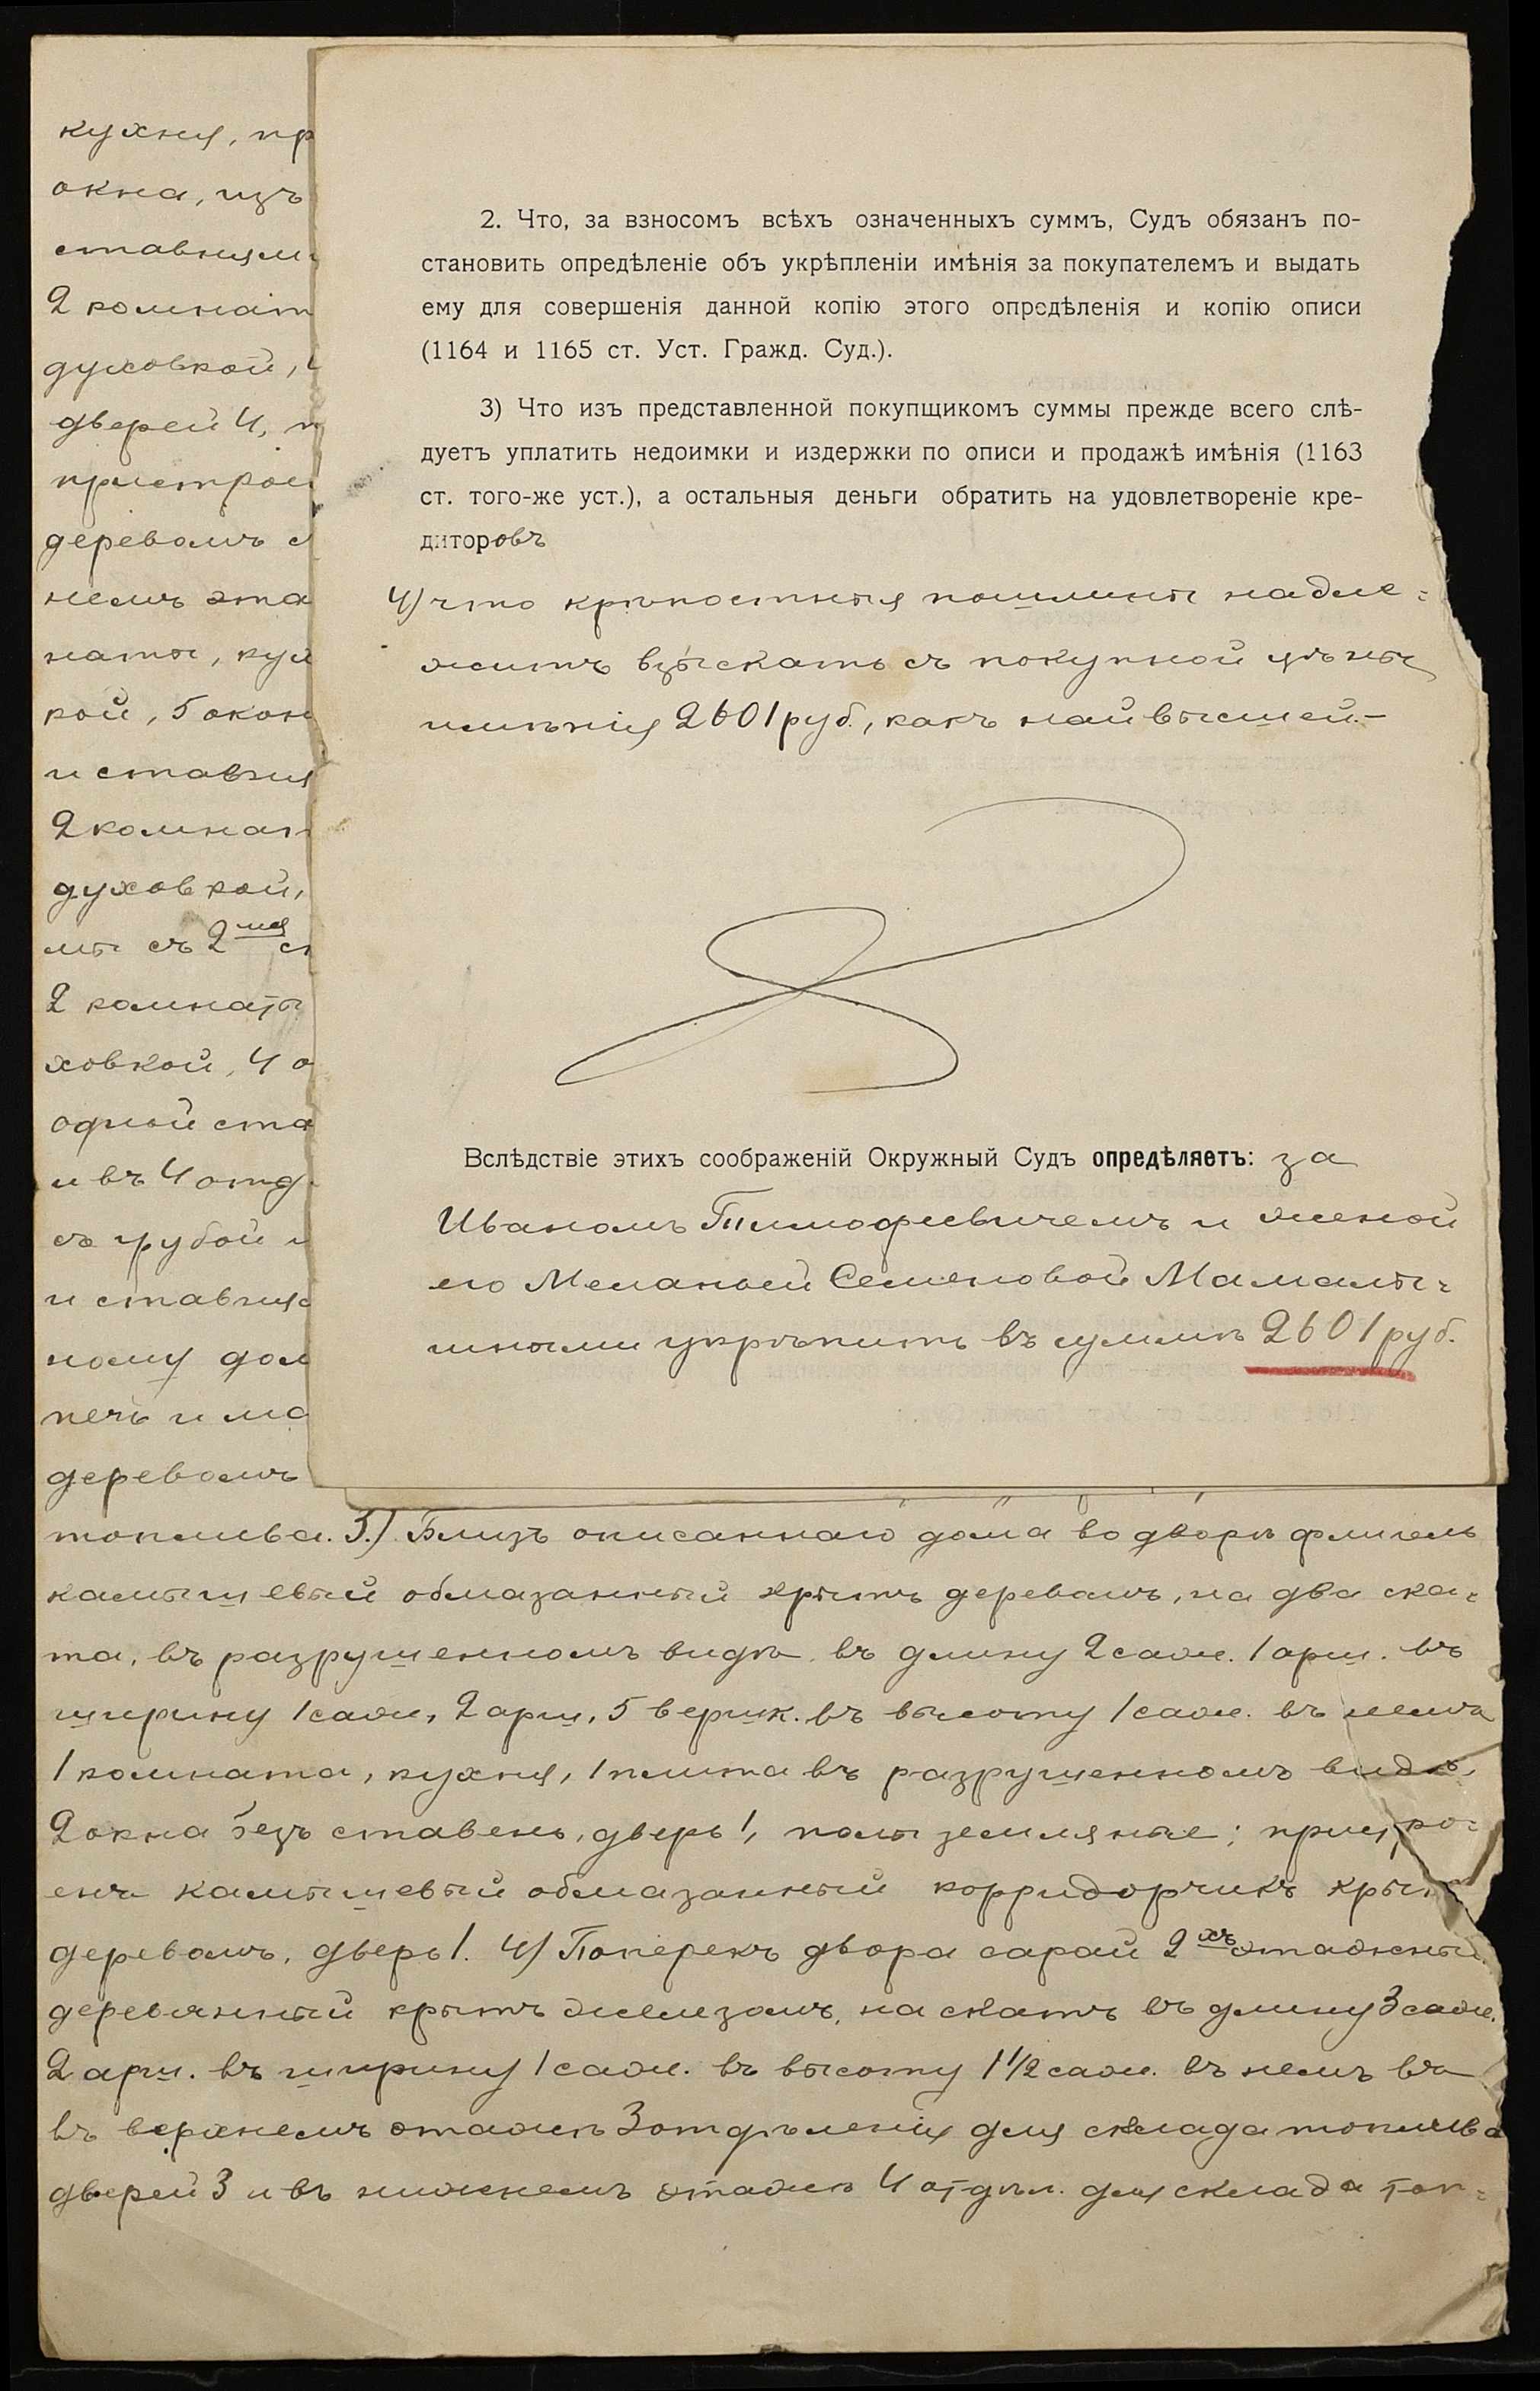 кухня, пр
окна, изъ
ставнями
2 комнат
духовкой,
дверей 4, п
пристрое
деревомъ
немъ эта
наты, кух
кой, 5 окон
и ставня
2 комнат
духовкой,
мы съ 2мя ст
2 комнаты
ховкой, 4 о
одной ста
и въ 4 отд
съ грубой и
и ставня
ному дом
печь и ма
деревомъ
2. Что, за взносомъ всѣхъ означенныхъ суммъ, Судъ обязанъ по-
становить опредѣленіе объ укрѣпленіи имѣнія за покупателемъ и выдать
ему для совершенія данной копію этого опредѣленія и копію описи
(1164 и 1165 ст. Уст. Гражд. Суд.).
3) Что изъ представленной покупщикомъ суммы прежде всего слѣ-
дуетъ уплатить недоимки и издержки по описи и продажѣ имѣнія (1163
ст. того-же уст.), а остальныя деньги обратить на удовлетвореніе кре-
диторовъ
4) что крѣпостныя пошлины надле=
житъ взыскать съ покупной цѣны
имѣнія 2601 руб., какъ наивысшей.—
Вслѣдствіе этихъ соображеній Окружный Судъ опредѣляетъ: за
Иваномъ Тимофеевичемъ и женой
его Меланьей Семеновой Мамалы=
шными укрѣпить въ суммѣ 2601 руб.
топлива. 3.) Близъ описаннаго дома во дворѣ флигель
камышевый обмазанный крытъ деревомъ, на два ска=
та, въ разрушенномъ видѣ въ длину 2 саж. 1 арш. въ
ширину 1 саж, 2 арш, 5 вершк. въ высоту 1 саж. въ немъ
1 комната, кухня, 1 плита въ разрушенномъ видѣ,
2 окна безъ ставень, дверь 1, полы земляные; пристро=
енъ камышевый обмазанный корридорчикъ крытъ
деревомъ, дверь 1. 4) Поперекъ двора сарай 2хъ этажный
деревянный крытъ желѣзомъ, на скатъ въ длину 3 саж.
2 арш. въ ширину 1 саж. въ высоту 1 1/2 саж. въ немъ въ
въ верхнемъ этажѣ 3 отдѣленія для склада топлива
дверей 3 и въ нижнемъ этажѣ 4 отдѣл. для склада топ=